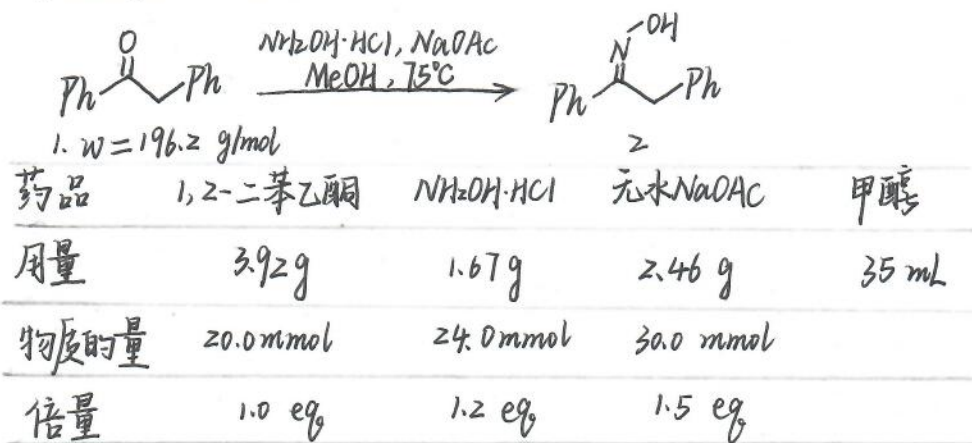 O NH2OH·HCl, NaOAc N-OH
Ph Ph MeOH, 75℃ Ph Ph
1. W=196.2 g/mol 2
药品 1,2-二苯乙酮 NH2OH·HCl 无水NaOAc 甲醇
用量 3.92g 1.67g 2.46 g 35 mL
物质的量 20.0mmol 24.0mmol 30.0 mmol
倍量 1.0 eq 1.2 eq 1.5 eq